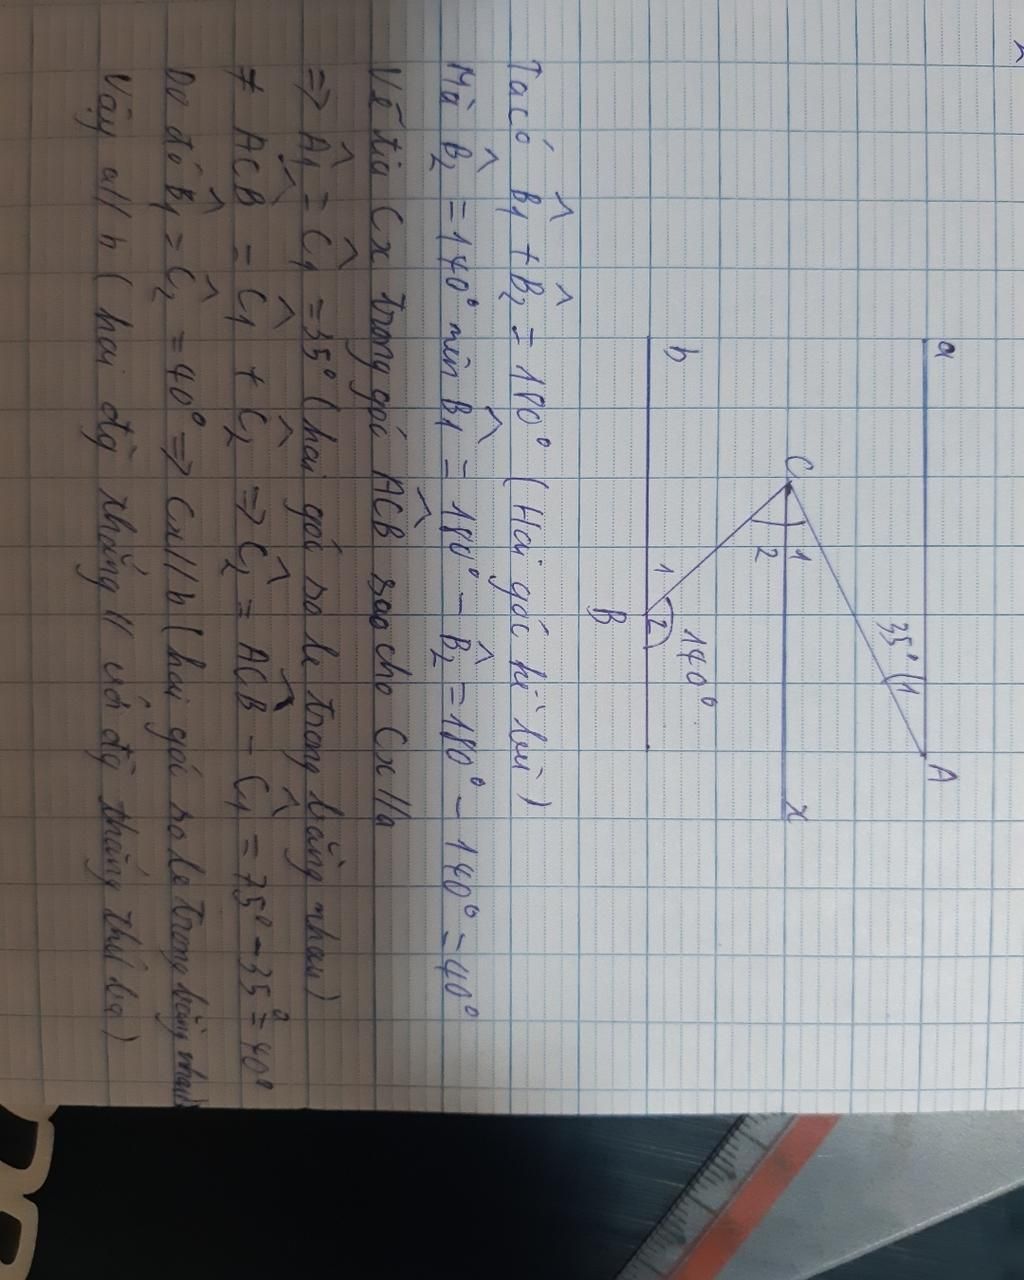 a
A
35°
1
C
1
2
x
140°
b
1
2
B
Ta có B̂₁ + B̂₂ = 180° (Hai góc kề bù)
Mà B̂₂ = 140° nên B̂₁ = 180° - B̂₂ = 180° - 140° = 40°
Vẽ tia Cx trong góc ACB sao cho Cx // a
=> Â₁ = Ĉ₁ = 35° (hai góc so le trong bằng nhau)
≠ ACB = Ĉ₁ + Ĉ₂ => Ĉ₂ = ACB - Ĉ₁ = 75° - 35° = 40°
Do đó B̂₁ = Ĉ₂ = 40° => Cx // b (hai góc so le trong bằng nhau)
Vậy a // b (hai đg thẳng // với đg thẳng thứ ba)